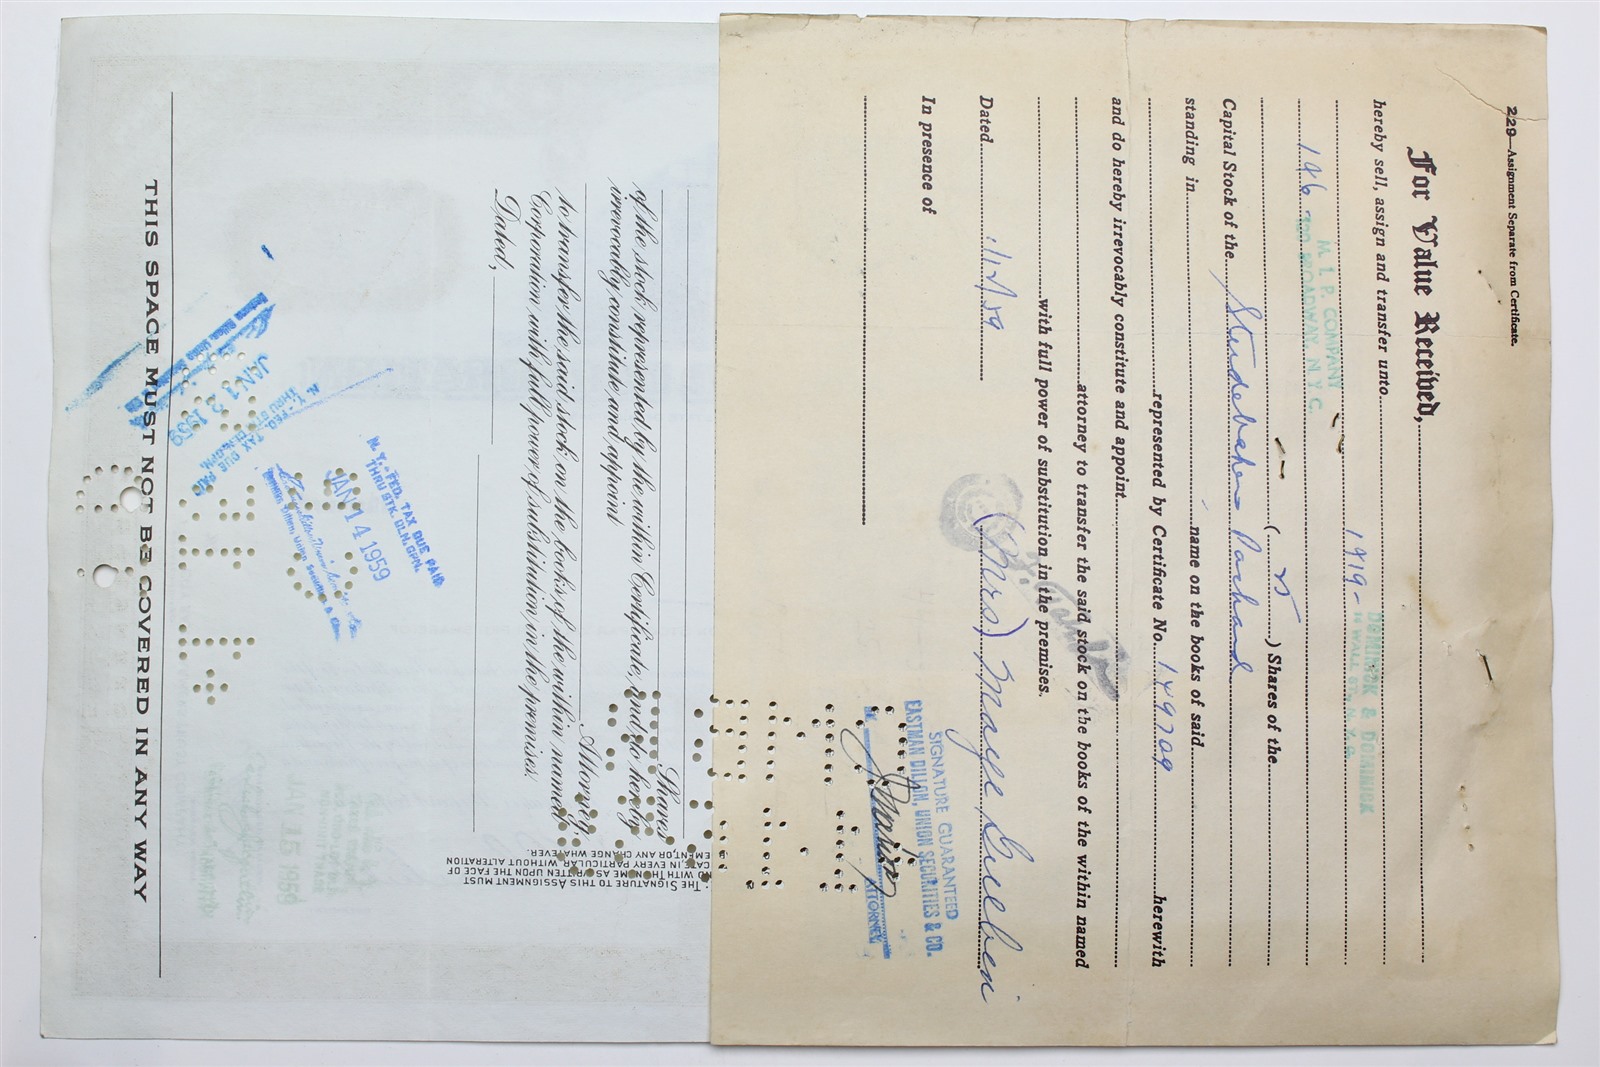 229—Assignment Separate from Certificate.
For Value Received,
hereby sell, assign and transfer unto
DOMINICK & DOMINICK
14 WALL ST., N. Y. C.
1919-
M. I. P. COMPANY
120 BROADWAY, N. Y. C.
196
( 25 ) Shares of the
Capital Stock of the Studebaker Packard
standing in name on the books of said
represented by Certificate No. 149709 herewith
and do hereby irrevocably constitute and appoint
attorney to transfer the said stock on the books of the within named
with full power of substitution in the premises.
Dated 1/12/59
(Mrs) Maye
In presence of
SIGNATURE GUARANTEED
EASTMAN DILLON, UNION SECURITIES & CO.
BY
ATTORNEY
Shares
of the stock represented by the within Certificate, and do hereby
irrevocably constitute and appoint
Attorney
to transfer the said stock on the books of the within named
Corporation with full power of substitution in the premises.
Dated,
THE SIGNATURE TO THIS ASSIGNMENT MUST
WITH THE NAME AS WRITTEN UPON THE FACE OF
IN EVERY PARTICULAR WITHOUT ALTERATION
OR ANY CHANGE WHATEVER.
N. Y. - FED. TAX DUE PAID
THRU STK. CLN. CRPN.
JAN 14 1959
N. Y. - FED. TAX DUE PAID
THRU STK. CLN. CRPN.
JAN 12 1959
THIS SPACE MUST NOT BE COVERED IN ANY WAY